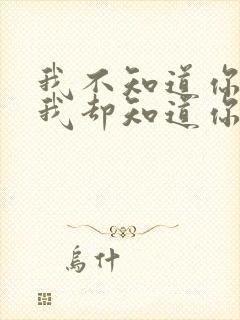 我不知道你
我却知道你
为什